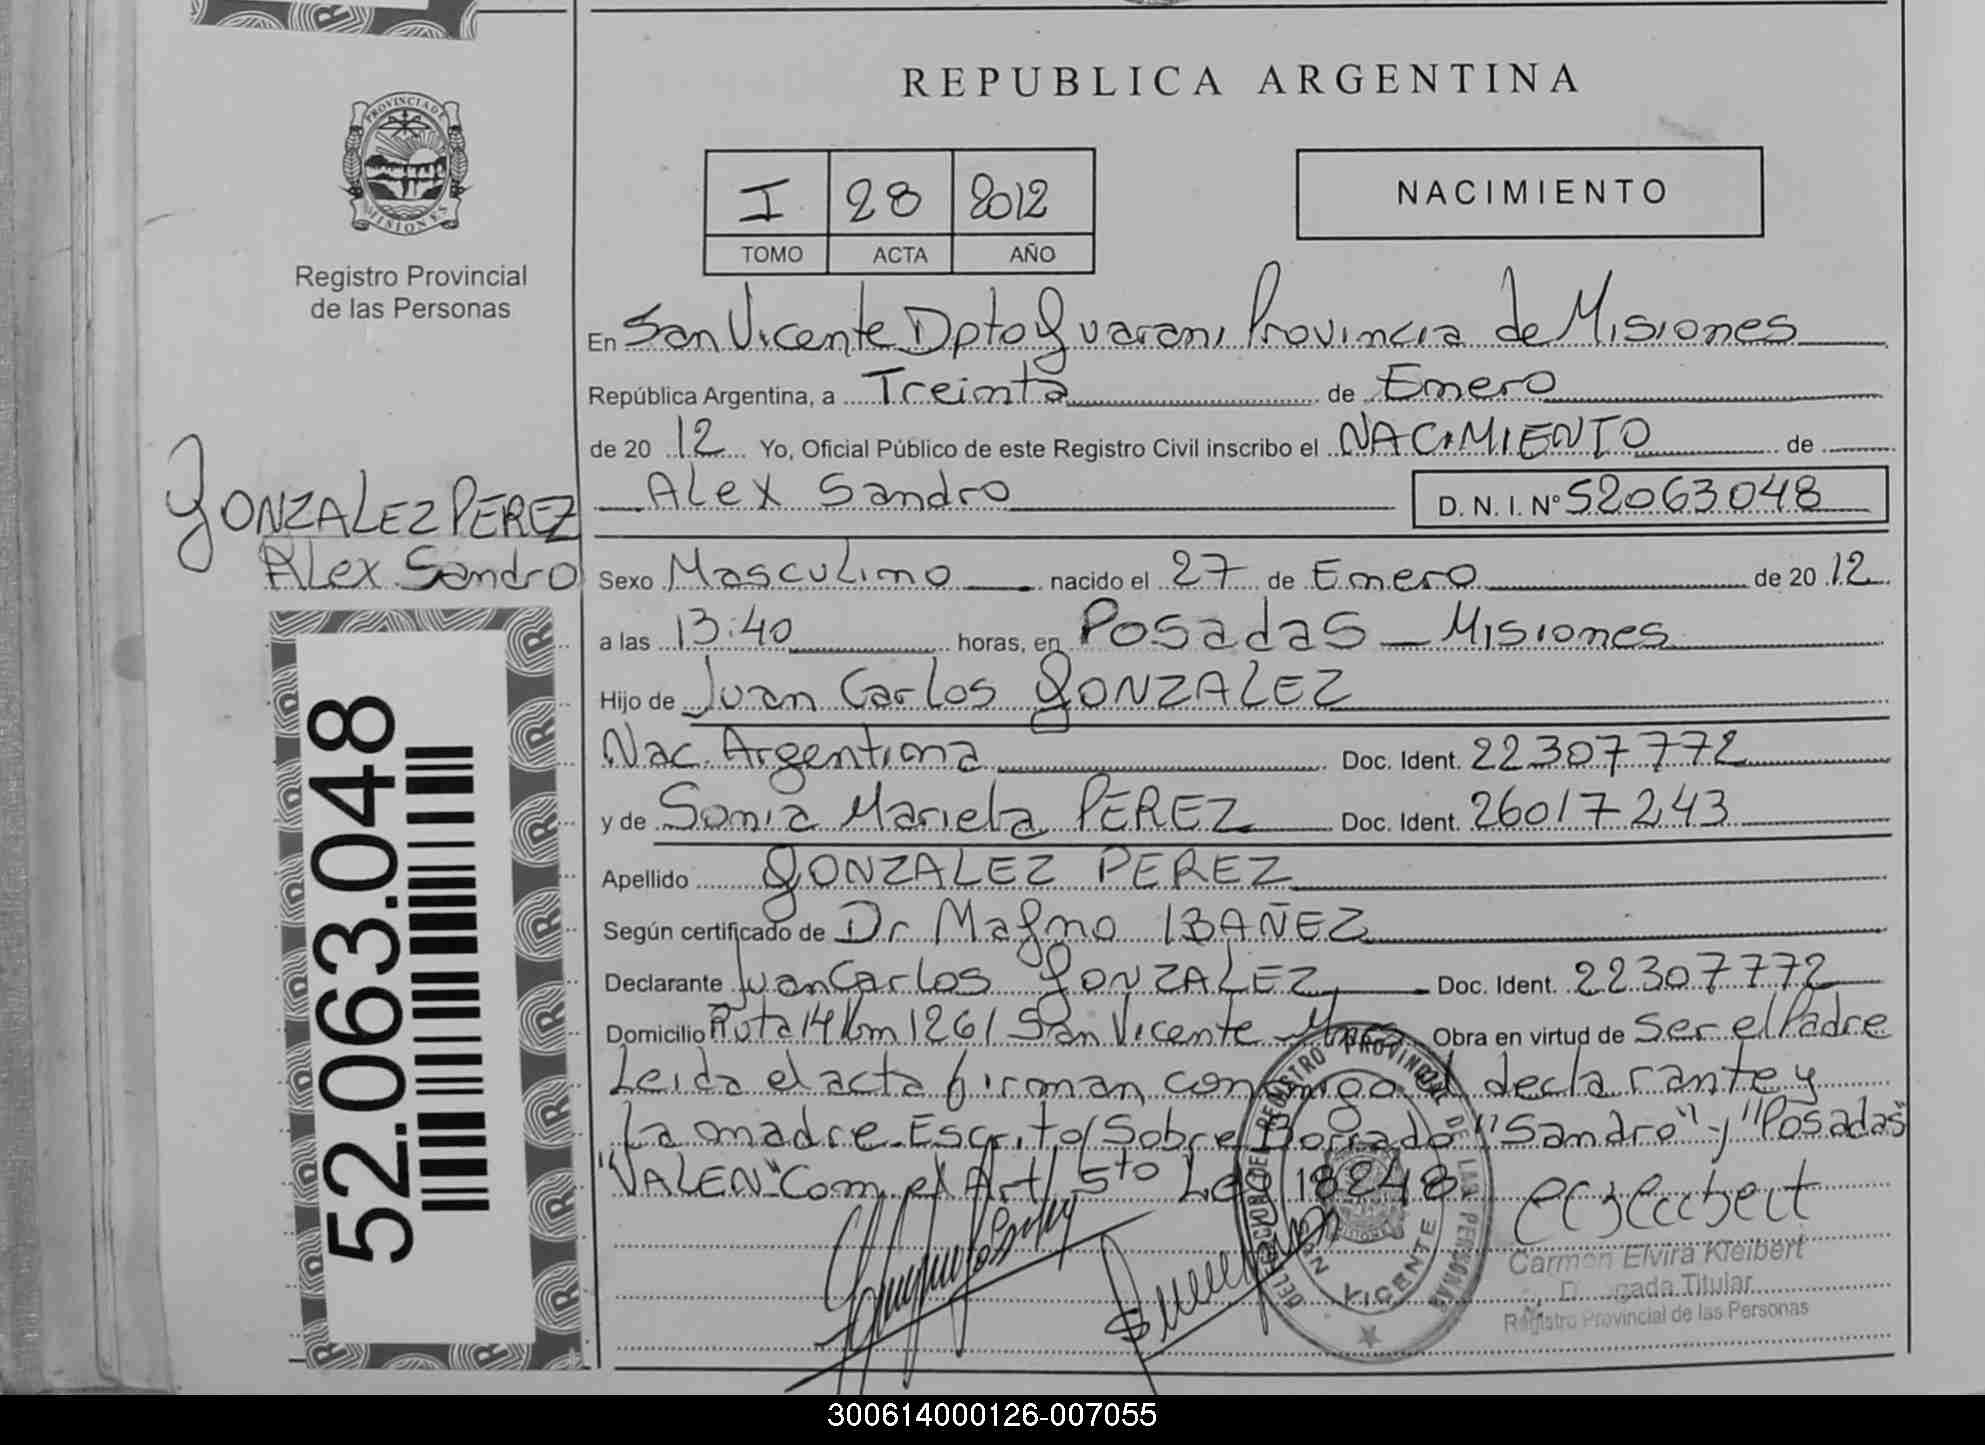 REPUBLICA ARGENTINA
PROVINCIA DE MISIONES
Registro Provincial
de las Personas
I 28 2012
TOMO ACTA AÑO
NACIMIENTO
En San Vicente Dpto Guarani Provincia de Misiones
República Argentina, a Treinta de Enero
de 20 12 Yo, Oficial Público de este Registro Civil inscribo el NACIMIENTO de
Alex Sandro D. N. I. Nº 52063048
GONZALEZ PEREZ
Alex Sandro
Sexo Masculino nacido el 27 de Enero de 20 12
a las 13:40 horas, en Posadas - Misiones
Hijo de Juan Carlos GONZALEZ
Nac. Argentina Doc. Ident. 22307772
y de Sonia Mariela PEREZ Doc. Ident. 26017243
Apellido GONZALEZ PEREZ
Según certificado de Dr Magno IBAÑEZ
Declarante Juan Carlos GONZALEZ Doc. Ident. 22307772
Domicilio Ruta 14 Km 1261 San Vicente Mnes Obra en virtud de Ser el Padre
Leida el acta firman conmigo el declarante y
la madre. Escrito/Sobre Borrado "Sandro" y "Posadas"
"VALEN" Com. el Art 5to Ley 18248
52.063.048
REGISTRO PROVINCIAL DE LAS PERSONAS
SAN VICENTE
Carmen Elvira Kleibert
Delegada Titular
Registro Provincial de las Personas
300614000126-007055